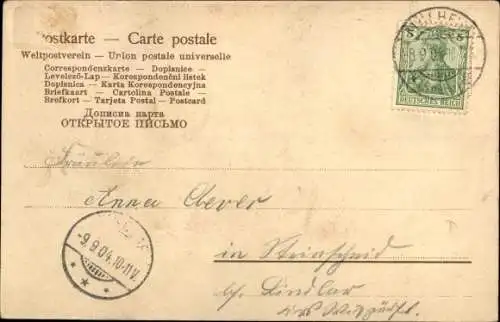 Postkarte — Carte postale
Weltpostverein — Union postale universelle
Correspondenzkarte — Dopisnice —
Levelező-Lap — Korespondenční lístek
Dopisnica — Karta Korespondencyjna
Briefkaart — Cartolina Postale —
Brefkort — Tarjeta Postal — Postcard
Дописна карта
ОТКРЫТОЕ ПИСЬМО
5 5
DEUTSCHES REICH
Fräulein
Anna Clever
-9.9.04.10-11V.
in Steinscheid
b/. Lindlar